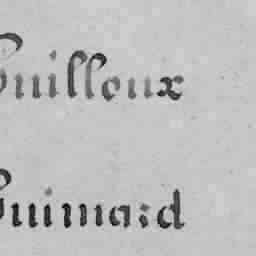 Guilloux
Guimard